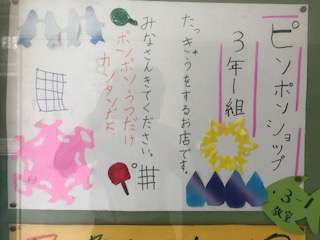 ピンポンショップ
3年1組
たっきゅうをするお店です。
みなさんきてください。
ポンポンうつだけ
カンタンだよ
3
教室